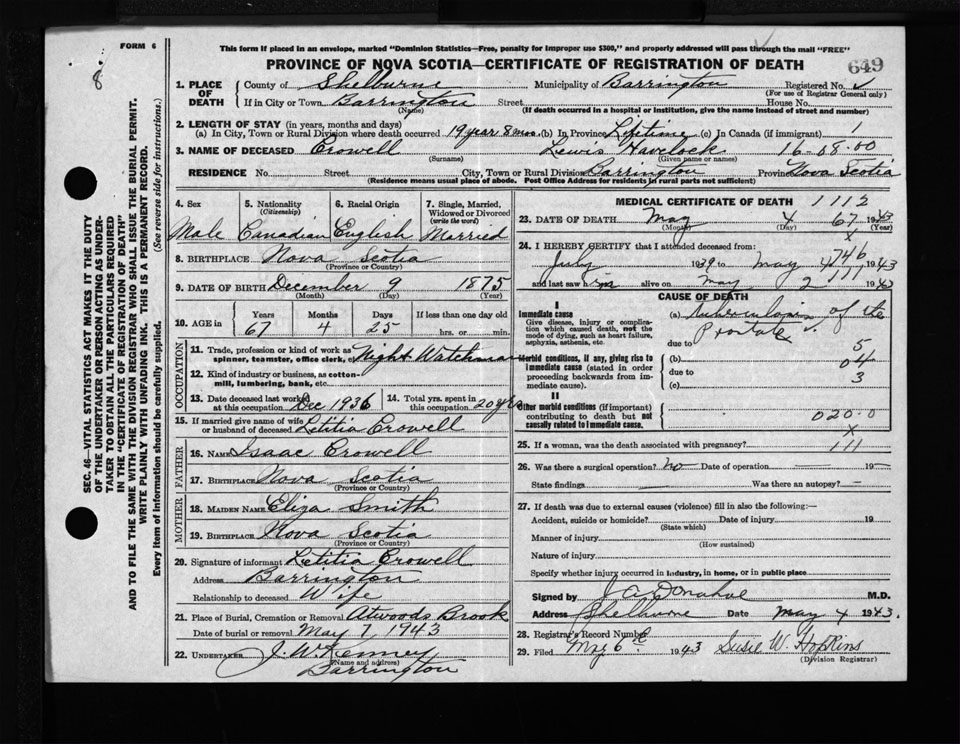 8
FORM 6
This form if placed in an envelope, marked "Dominion Statistics—Free, penalty for improper use $300," and properly addressed will pass through the mail "FREE"
PROVINCE OF NOVA SCOTIA—CERTIFICATE OF REGISTRATION OF DEATH
649
1. PLACE OF DEATH { County of Shelburne Municipality of Barrington Registered No.
(For use of Registrar General only)
If in City or Town Barrington Street House No.
(Name) (If death occurred in a hospital or institution, give the name instead of street and number)
2. LENGTH OF STAY (in years, months and days)
(a) In City, Town or Rural Division where death occurred 19 year 8 mos. (b) In Province Lifetime (c) In Canada (if immigrant) 1
3. NAME OF DECEASED Crowell Lewis Havelock 16-08.00
(Surname) (Given name or names)
RESIDENCE No. Street City, Town or Rural Division Barrington Province Nova Scotia
(Residence means usual place of abode. Post Office Address for residents in rural parts not sufficient)
4. Sex 5. Nationality (Citizenship) 6. Racial Origin 7. Single, Married, Widowed or Divorced (write the word)
Male Canadian English Married
8. BIRTHPLACE Nova Scotia
(Province or Country)
9. DATE OF BIRTH December 9 1875
(Month) (Day) (Year)
10. AGE in { Years Months Days If less than one day
67 4 25 hrs. or min.
OCCUPATION
11. Trade, profession or kind of work as spinner, teamster, office clerk, etc. Night Watchman
12. Kind of industry or business, as cotton-mill, lumbering, bank, etc.
13. Date deceased last worked at this occupation Dec 1936 14. Total yrs. spent in this occupation 20 yrs
15. If married give name of wife or husband of deceased Letitia Crowell
FATHER
16. NAME Isaac Crowell
17. BIRTHPLACE Nova Scotia
(Province or Country)
MOTHER
18. MAIDEN NAME Eliza Smith
19. BIRTHPLACE Nova Scotia
(Province or Country)
20. Signature of informant Letitia Crowell
Address Barrington
Relationship to deceased Wife
21. Place of Burial, Cremation or Removal Atwoods Brook
Date of burial or removal May 7, 1943
22. UNDERTAKER J. W. Kenney
(Name and address)
Barrington
MEDICAL CERTIFICATE OF DEATH 1112
23. DATE OF DEATH May 4 67 1943
(Month) (Day) (Year)
x
24. I HEREBY CERTIFY that I attended deceased from:
July 1939 to May 4 1943
746
and last saw him alive on May 2 1943
111
CAUSE OF DEATH
I
Immediate cause
Give disease, injury or complication which caused death, not the mode of dying, such as heart failure, asphyxia, asthenia, etc.
(a) Tuberculosis of the Prostate
due to 5
Morbid conditions, if any, giving rise to immediate cause (stated in order proceeding backwards from immediate cause).
(b) 04
due to 3
(c)
II
Other morbid conditions (if important) contributing to death but not causally related to immediate cause.
020.0
x
25. If a woman, was the death associated with pregnancy? 111
26. Was there a surgical operation? no Date of operation — 19—
State findings Was there an autopsy? —
27. If death was due to external causes (violence) fill in also the following:—
Accident, suicide or homicide? Date of injury 19
(State which)
Manner of injury
(How sustained)
Nature of injury
Specify whether injury occurred in industry, in home, or in public place
Signed by J A Donahoe M.D.
Address Shelburne Date May 4 1943.
28. Registrar's Record Number
29. Filed May 6 1943 Susie W. Hopkins
(Division Registrar)
SEC. 46—VITAL STATISTICS ACT MAKES IT THE DUTY
OF THE UNDERTAKER OR PERSON ACTING AS UNDER-
TAKER TO OBTAIN ALL THE PARTICULARS REQUIRED
IN THE "CERTIFICATE OF REGISTRATION OF DEATH"
AND TO FILE THE SAME WITH THE DIVISION REGISTRAR WHO SHALL ISSUE THE BURIAL PERMIT.
WRITE PLAINLY WITH UNFADING INK. THIS IS A PERMANENT RECORD.
Every item of information should be carefully supplied. (See reverse side for instructions.)